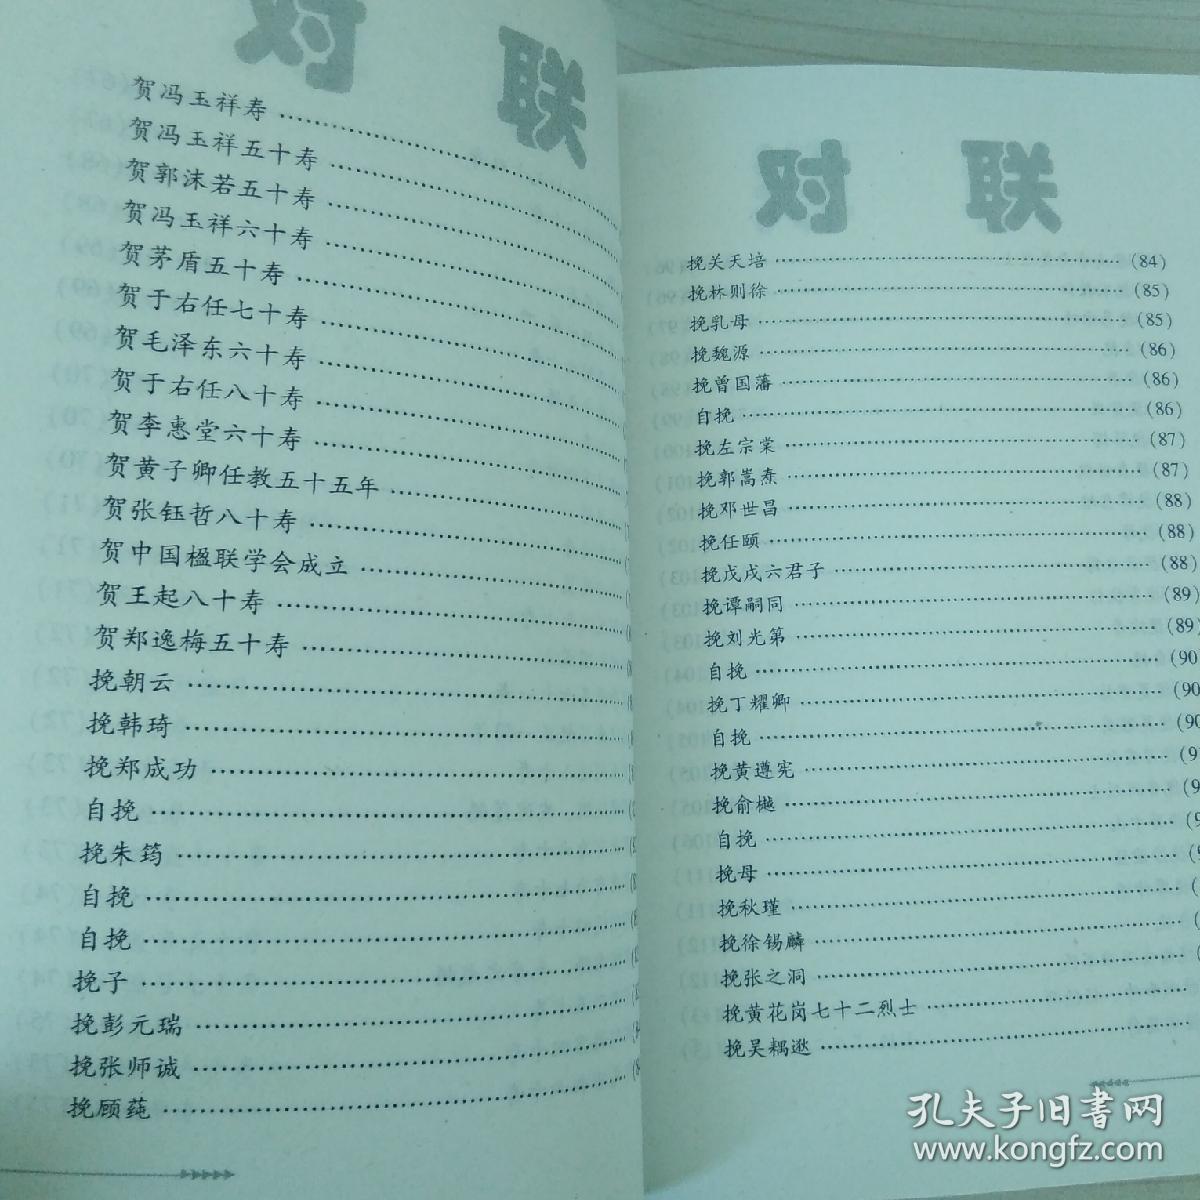 贺冯玉祥寿
贺冯玉祥五十寿
贺郭沫若五十寿
贺冯玉祥六十寿
贺茅盾五十寿
贺于右任七十寿
贺毛泽东六十寿
贺于右任八十寿
贺李惠堂六十寿
贺黄子卿任教五十五年
贺张钰哲八十寿
贺中国楹联学会成立
贺王起八十寿
贺郑逸梅五十寿
挽朝云
挽韩琦
挽郑成功
自挽
挽朱筠
自挽
自挽
挽子
挽彭元瑞
挽张师诚
挽顾莼
挽关天培 (84)
挽林则徐 (85)
挽乳母 (85)
挽魏源 (86)
挽曾国藩 (86)
自挽 (86)
挽左宗棠 (87)
挽郭嵩焘 (87)
挽邓世昌 (88)
挽任颐 (88)
挽戊戌六君子 (88)
挽谭嗣同 (89)
挽刘光第 (89)
自挽 (90
挽丁耀卿 (90
自挽 (90
挽黄遵宪 (9
挽俞樾 (9
自挽 (9
挽母
挽秋瑾
挽徐锡麟
挽张之洞
挽黄花岗七十二烈士
挽吴禄贞
孔夫子旧书网
www.kongfz.com